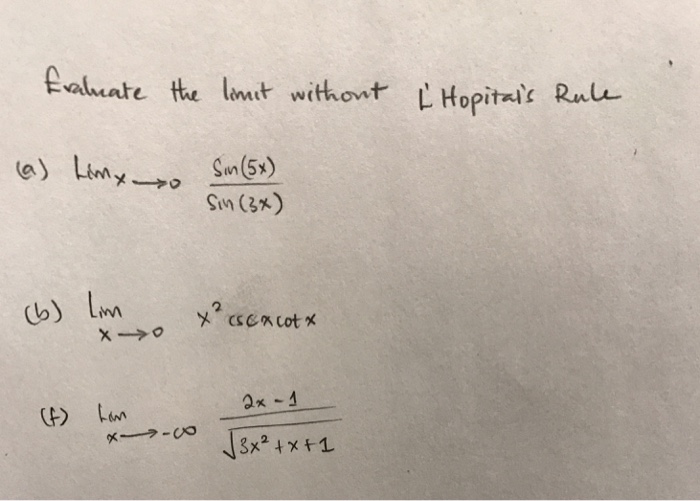 Evaluate the limit without L'Hopital's Rule
(a) Lim x→0 Sin(5x) / Sin(3x)
(b) Lim x→0 x² csc x cot x
(f) Lim x→-∞ 2x - 1 / √3x² + x + 1